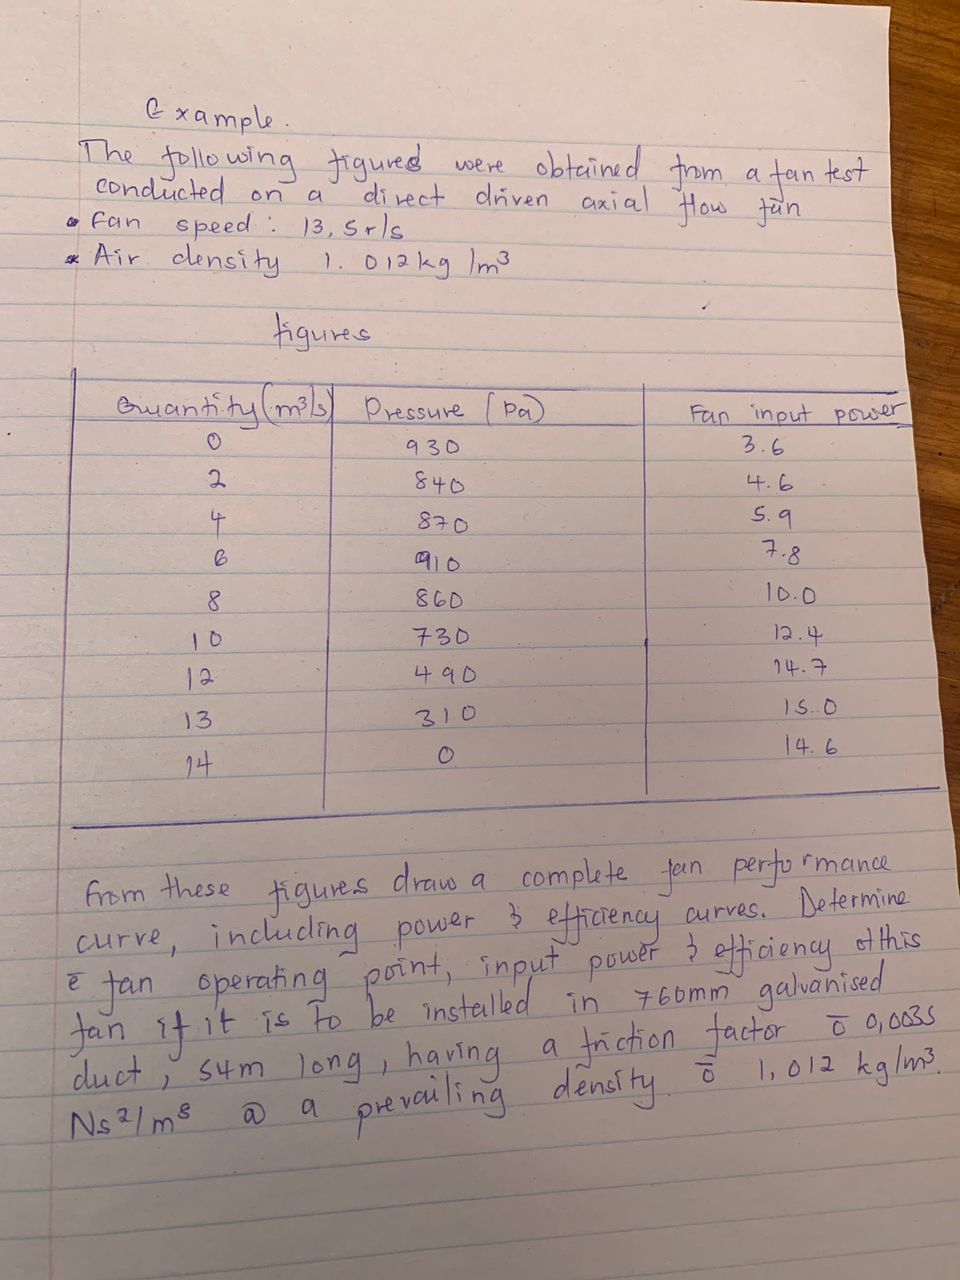 Example.
The following figures were obtained from a fan test
conducted on a direct driven axial flow fan
• Fan speed : 13,5 r/s
* Air density 1.012 kg/m³
figures
Quantity (m³/s) Pressure (Pa) Fan input power
0 930 3.6
2 840 4.6
4 870 5.9
6 910 7.8
8 860 10.0
10 730 12.4
12 490 14.7
13 310 15.0
14 0 14.6
from these figures draw a complete fan performance
curve, including power & efficiency curves. Determine
ē fan operating point, input power & efficiency of this
fan if it is to be installed in 760mm galvanised
duct, 54m long, having a friction factor ō 0,0035
Ns²/m⁸ @ a prevailing density ō 1,012 kg/m³.